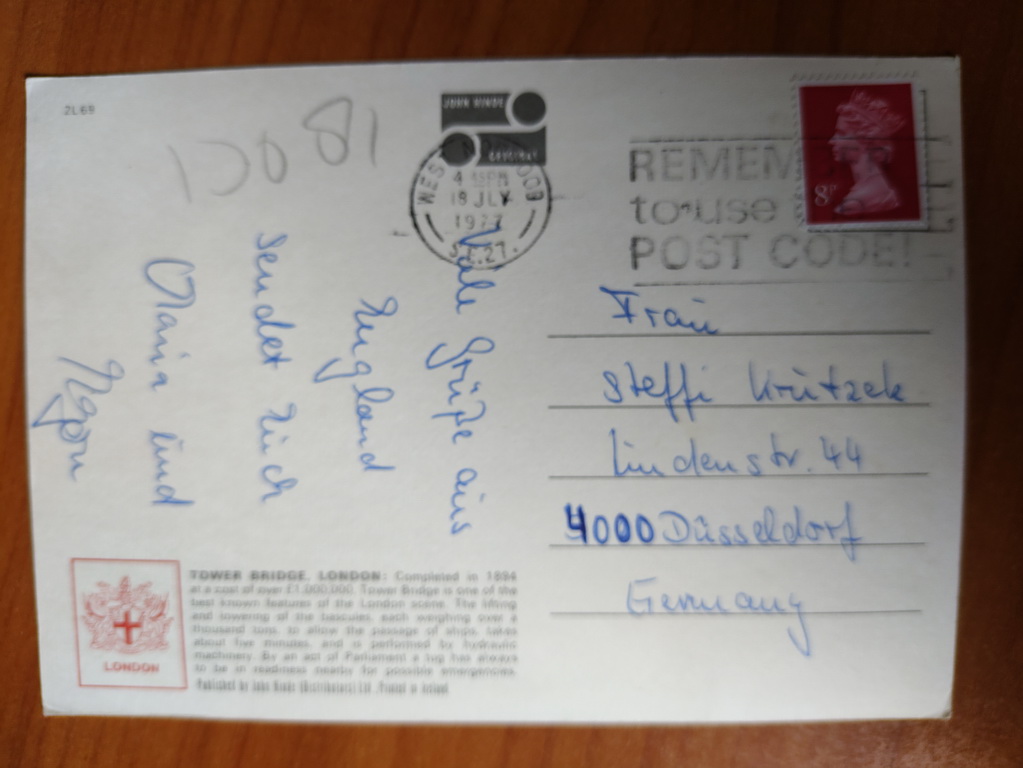 2L69
JOHN HINDE
ORIGINAL
WEST NORWOOD
4 PM
18 JLY
1977
S.E.27.
REMEMBER
to use
POST CODE!
8P
Viele Grüße aus
England
sendet Euch
Maria und
Frau
Steffi Krützek
Lindenstr. 44
4000 Düsseldorf
Germany
TOWER BRIDGE, LONDON: Completed in 1894
at a cost of over £1,000,000, Tower Bridge is one of the
best known features of the London scene. The lifting
and lowering of the bascules, each weighing over a
thousand tons, to allow the passage of ships, takes
about five minutes, and is performed by hydraulic
machinery. By an act of Parliament a tug has always
to be in readiness nearby for possible emergencies.
Published by John Hinde (Distributors) Ltd. Printed in Ireland.
LONDON